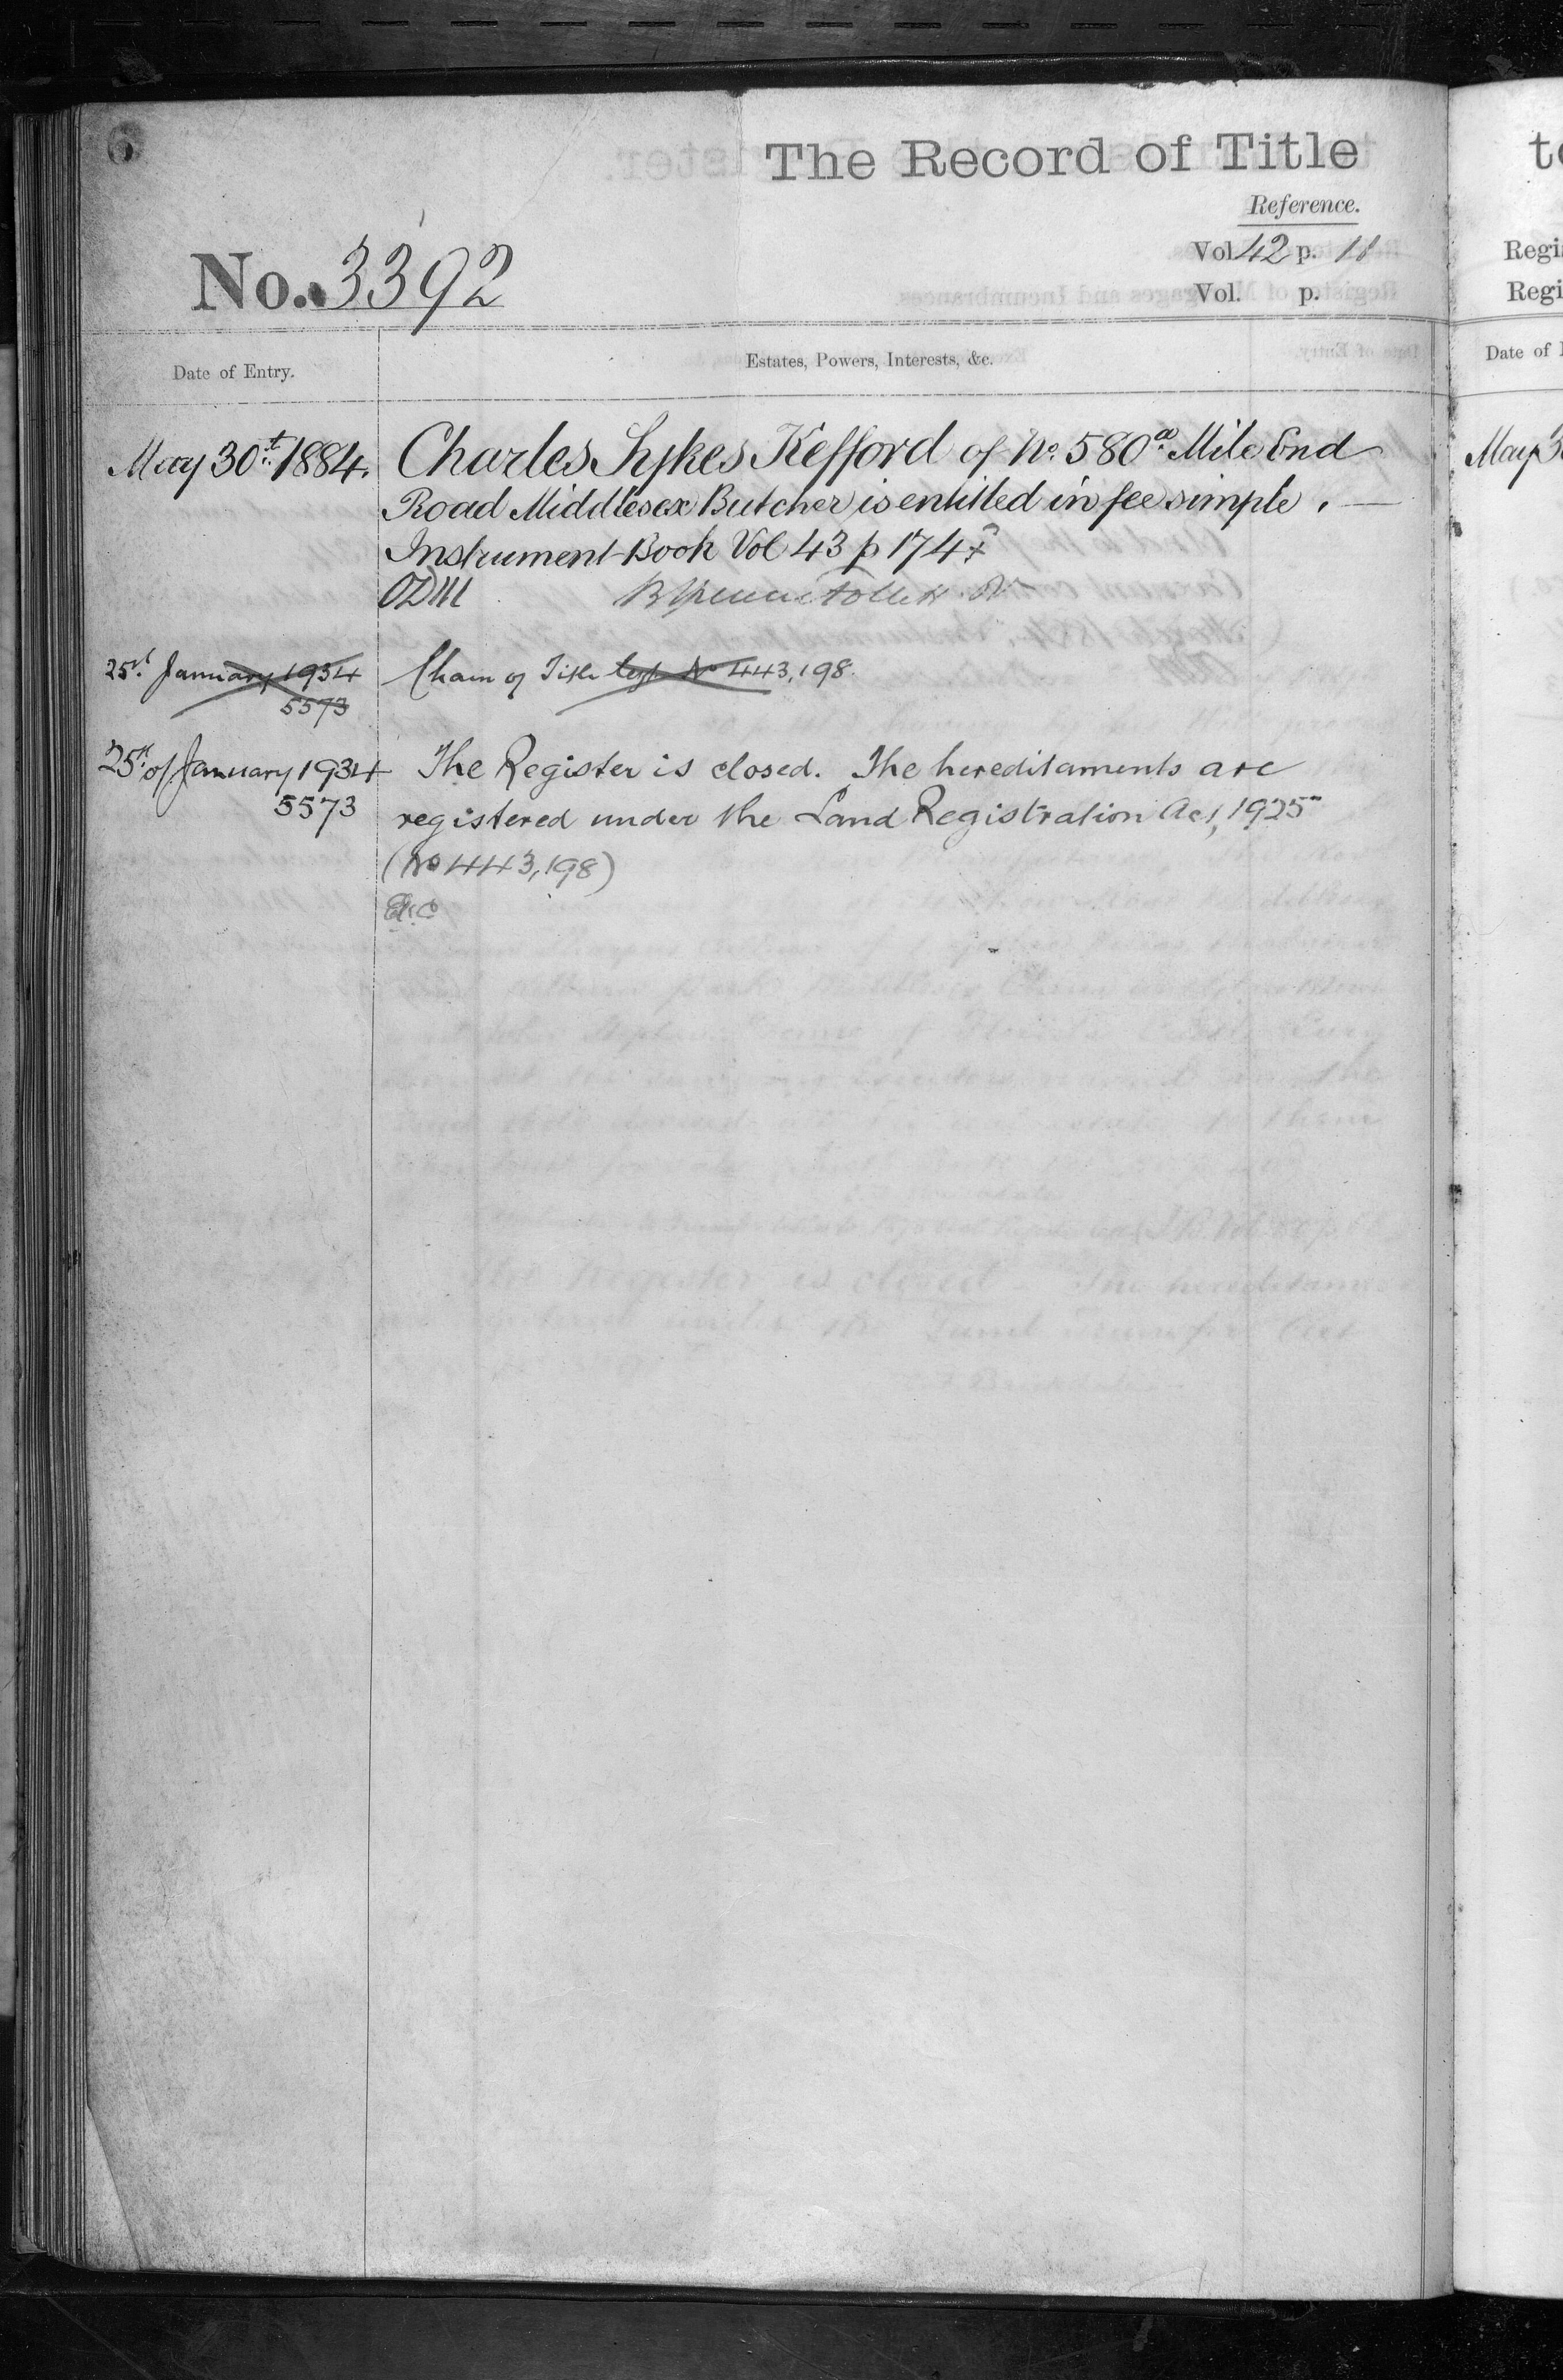 6
The Record of Title
Reference.
Vol 42 p. 11
Vol. p.
No. 3392
Date of Entry.
Estates, Powers, Interests, &c.
May 30th 1884. Charles Sykes Kefford of No. 580a Mile End
Road Middlesex Butcher is entitled in fee simple.
Instrument Book Vol 43 p 174
25th January 1934 Chain of Title No 443,198.
5573
25th of January 1934 The Register is closed. The hereditaments are
5573 registered under the Land Registration Act, 1925
(No 443,198)
to
Regi
Regi
Date of
May 3